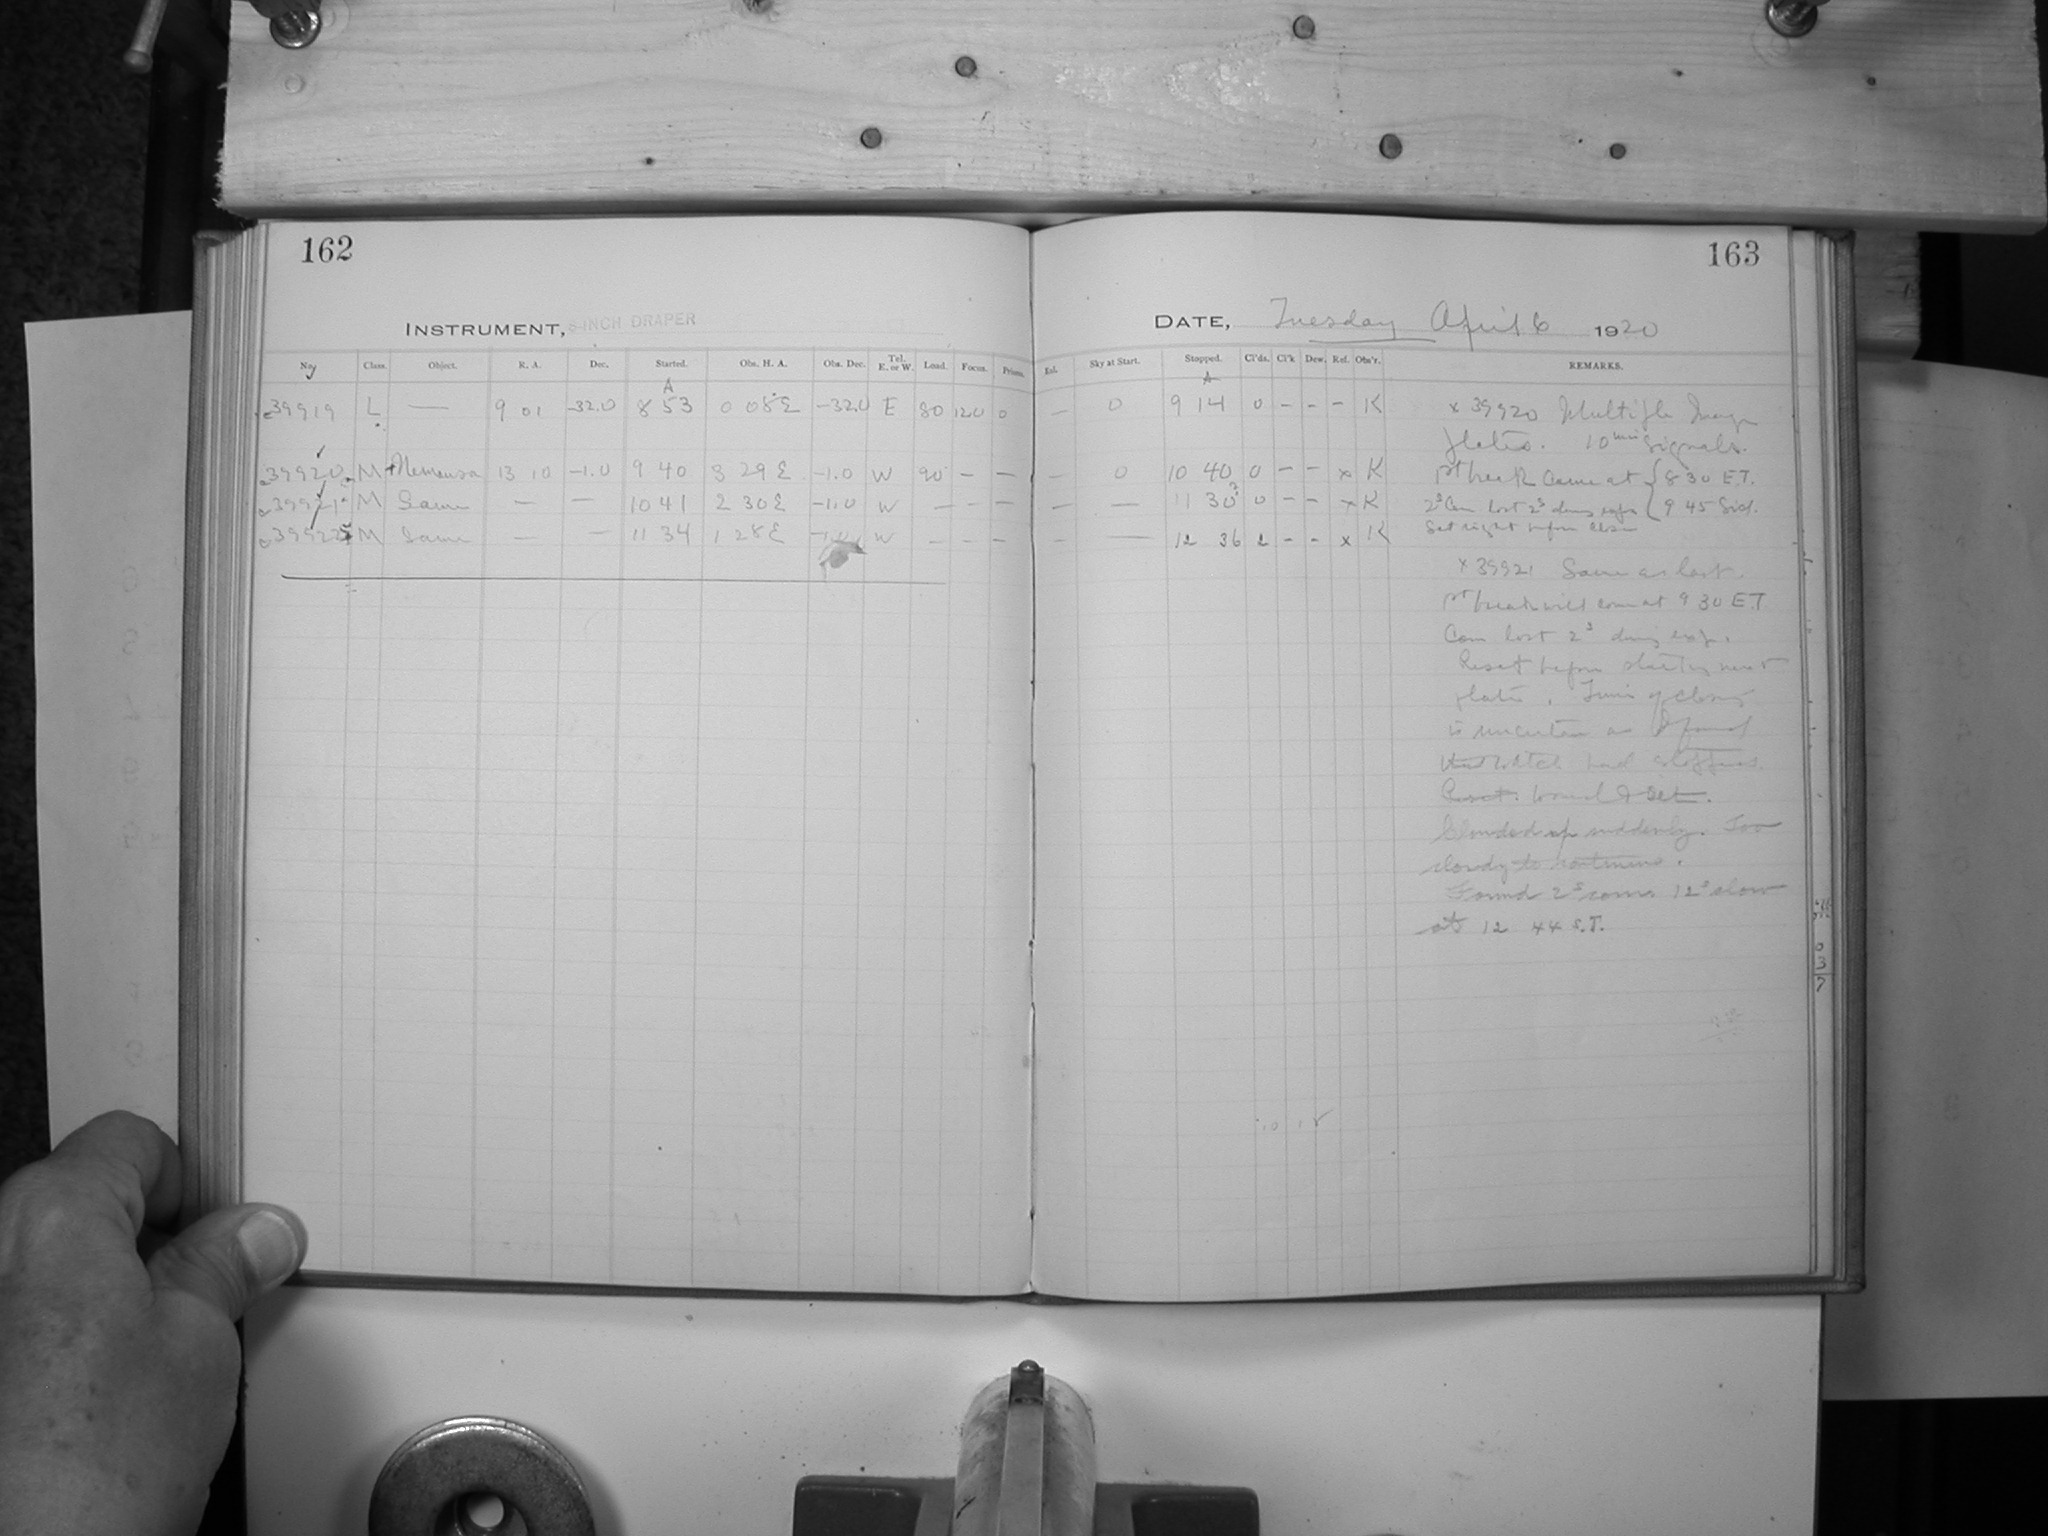 162
163
INSTRUMENT, 8-INCH DRAPER
DATE, Tuesday April 6 1920
No. Class. Object. R. A. Dec. Started. Obs. H. A. Obs. Dec. Tel. E. or W. Load. Focus. Prisms. Exl. Sky at Start. Stopped. Cl'ds. Cl'k Dew. Ref. Obs'r. REMARKS.
A A
39919 L — 9 01 -32.0 8 53 0 08 E -32.0 E 80 120 0 — 0 9 14 0 - - - K
39920 M Nemausa 13 10 -1.0 9 40 3 29 E -1.0 W 90 — — — 0 10 40 0 - - x K
39921 M Same — — 10 41 2 30 E -1.0 W — — — — — 11 30 0 - - x K
39922 M Same — — 11 34 1 28 E W — — — — — 12 36 2 - - x K
x 39920 Multiple Image
plates. 10 min signals.
1st break came at 8 30 E.T.
2s lost 2s during exp. 9 45 Sid.
Set right before close
x 39921 Same as last.
1st break will come at 9 30 E.T
lost 2s during exp.
Reset before starting next
plate. Time of close
is uncertain as I found
watch had stopped.
Reset. Wound & Set.
Clouded up suddenly. Too
cloudy to continue.
Found 2s 12s slow
at 12 44 S.T.